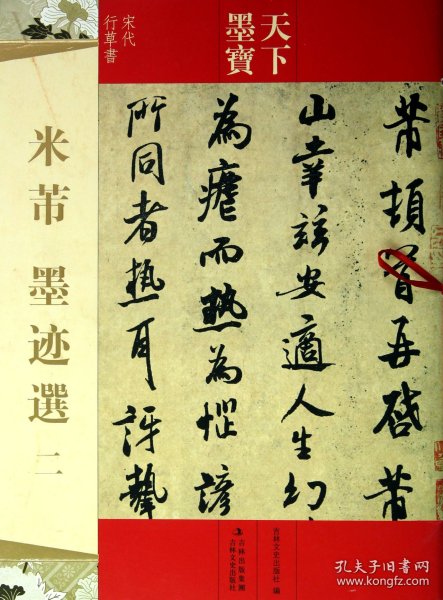 天下
墨寶
宋代
行草書
米芾 墨迹選 二
芾頓首再啓芾
山幸茲安適人生幻
為瘧而熱為惺諺
所同者熱耳訝摯
吉林文史出版社 編
吉林出版集團
吉林文史出版社
孔夫子旧书网
www.kongfz.com